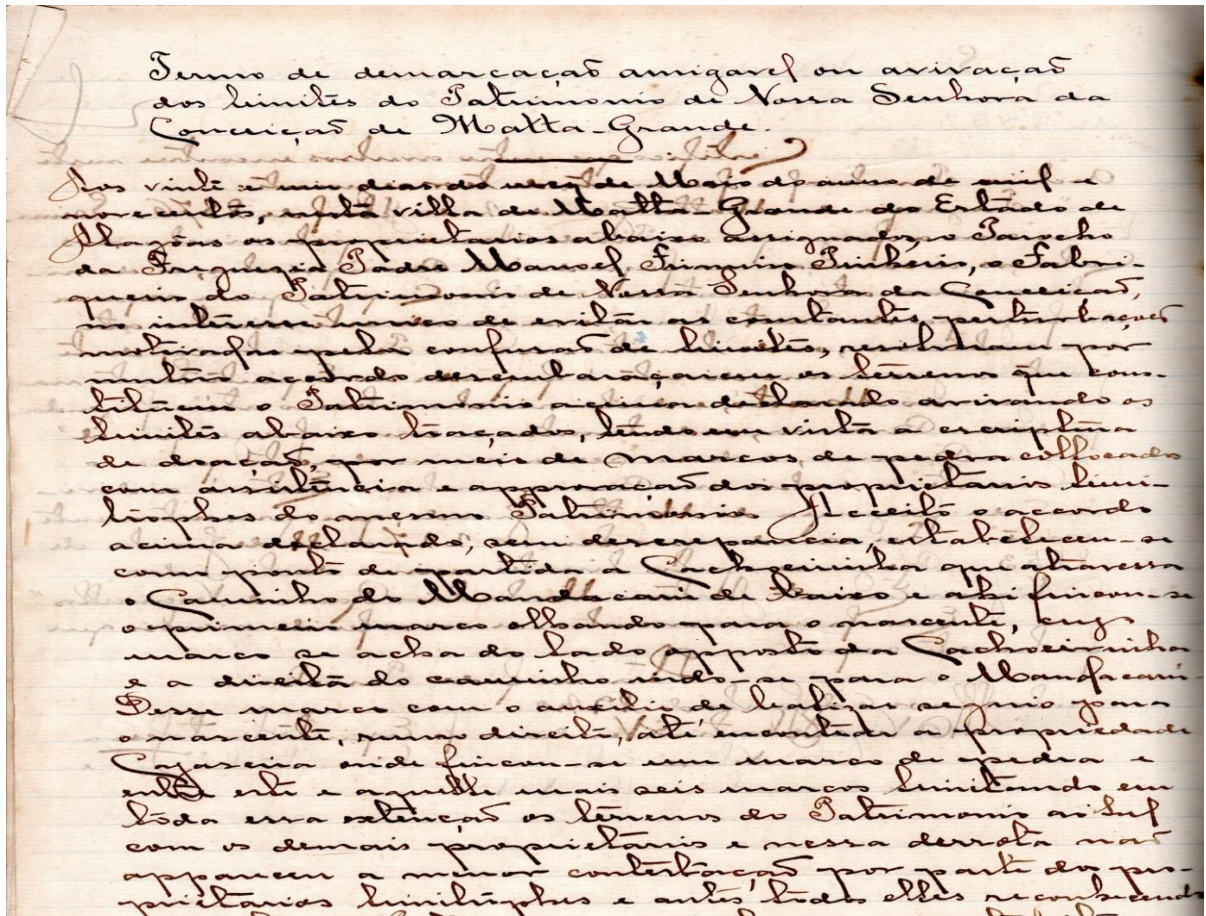 Termo de demarcação amigavel ou avivação
dos limites do Patrimonio de Nossa Senhora da
Conceição de Matta-Grande.
Aos vinte e um dias do mez de Maio do anno de mil e
novecentos, nesta villa de Matta-Grande do Estado de
Alagôas os proprietarios abaixo assignados, o Parocho
da Freguezia Padre Manoel Firmino Pinheiro, o Fabri-
queiro do Patrimonio de Nossa Senhora da Conceição,
no interesse unico de evitar as constantes perturbações
motivadas pela confusão de limites, resolveram por
mutuo accordo desembaraçarem os terrenos que cons-
tituem o Patrimonio acima declarado avivando os
limites abaixo traçados, tendo em vista a escriptura
de doação, por meio de marcos de pedra collocados
com assistencia e approvação dos proprietarios limi-
trophes do mesmo Patrimonio. Acceito o accordo
acima declarado, sem descrepancia, estabeleceu-se
como ponto de partida a Cachoeirinha que atravessa
o Caminho do Mandacarú de baixo e ahi fincou-se
o primeiro marco olhando para o nascente, cujo
marco se acha do lado opposto da Cachoeirinha
e a direita do caminho indo-se para o Mandacarú.
Desse marco com o auxilio de balizas seguio para
o nascente, rumo direito, até encontrar a propriedade
Cajaseira onde fincou-se um marco de pedra e
entre este e aquelle mais seis marcos limitando em
toda essa extenção os terrenos do Patrimonio ao Sul
com os demais proprietarios e nessa derrota não
appareceu a menor contestação por parte dos pro-
prietarios limitrophes e antes todos elles reconhecendo